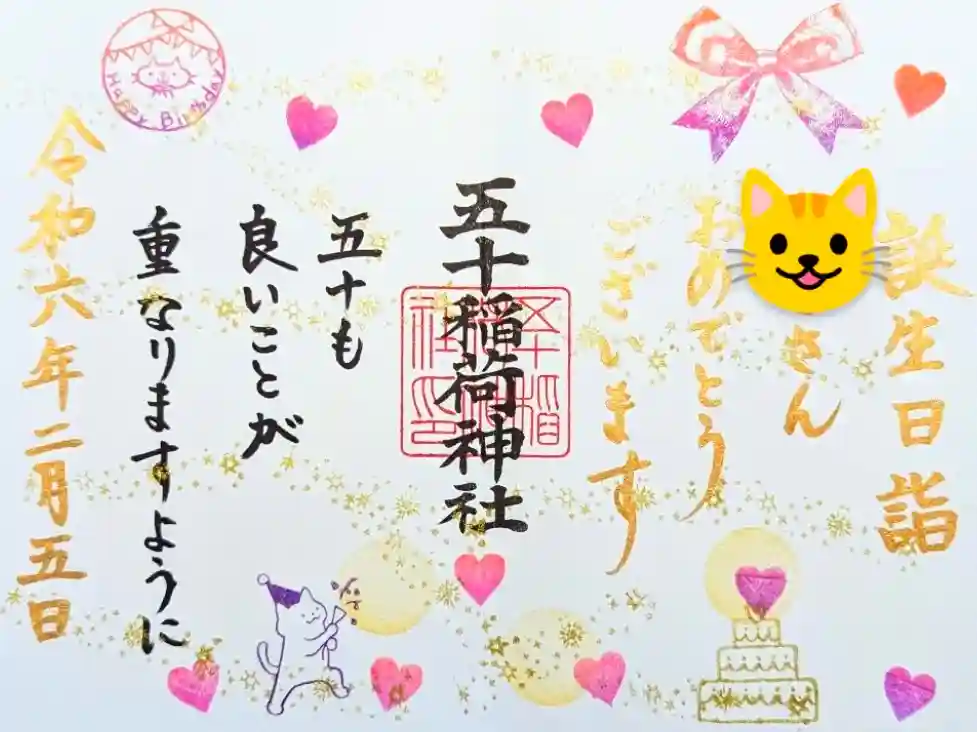 誕生日詣
さん
おめでとう
ございます
五十稲荷神社
五十も
良いことが
重なりますように
令和六年二月五日
Happy Birthday